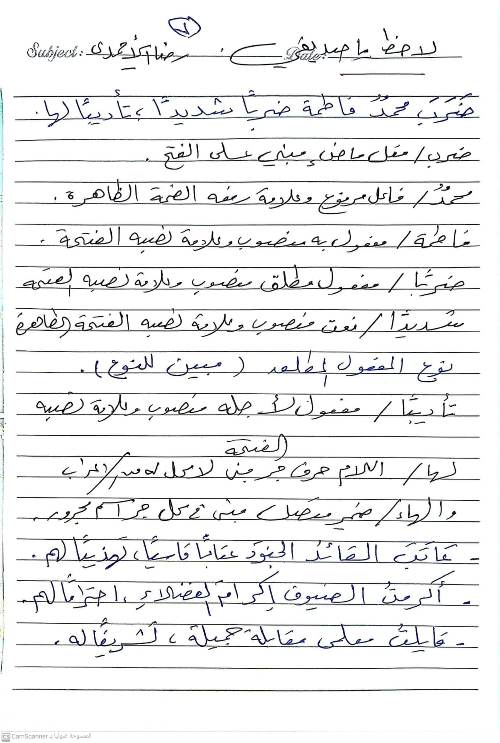 ١
لاحظ ما صديقي .
Subject: رضا الأحمدي Date:
ضَرَبَ محمدٌ فاطمة ضربًا شديدًا ؛ تأديبًا لها .
ضرب / فعل ماضٍ مبني على الفتح .
محمدٌ / فاعل مرفوع وعلامة رفعه الضمة الظاهرة .
فاطمة / مفعول به منصوب وعلامة نصبه الفتحة .
ضربًا / مفعول مطلق منصوب وعلامة نصبه الفتحة
شديدًا / نعت منصوب وعلامة نصبه الفتحة الظاهرة
نوع المفعول المطلق ( مبين للنوع ) .
تأديبًا / مفعول لأجله منصوب وعلامة نصبه
الفتحة
لها / اللام حرف جر مبني لا محل له من الإعراب
والهاء / ضمير متصل مبني في محل جر اسم مجرور .
- عَاقَبَ القائدُ الجنودَ عقابًا قاسيًا ، تهذيبًا لهم .
- أكرمتُ الضيوف إكرامَ الفضلاءِ ، احترامًا لهم .
- قابلتُ معلمي مقابلة جميلة ، تشريفًا له .
CamScanner الممسوحة ضوئيا بـ